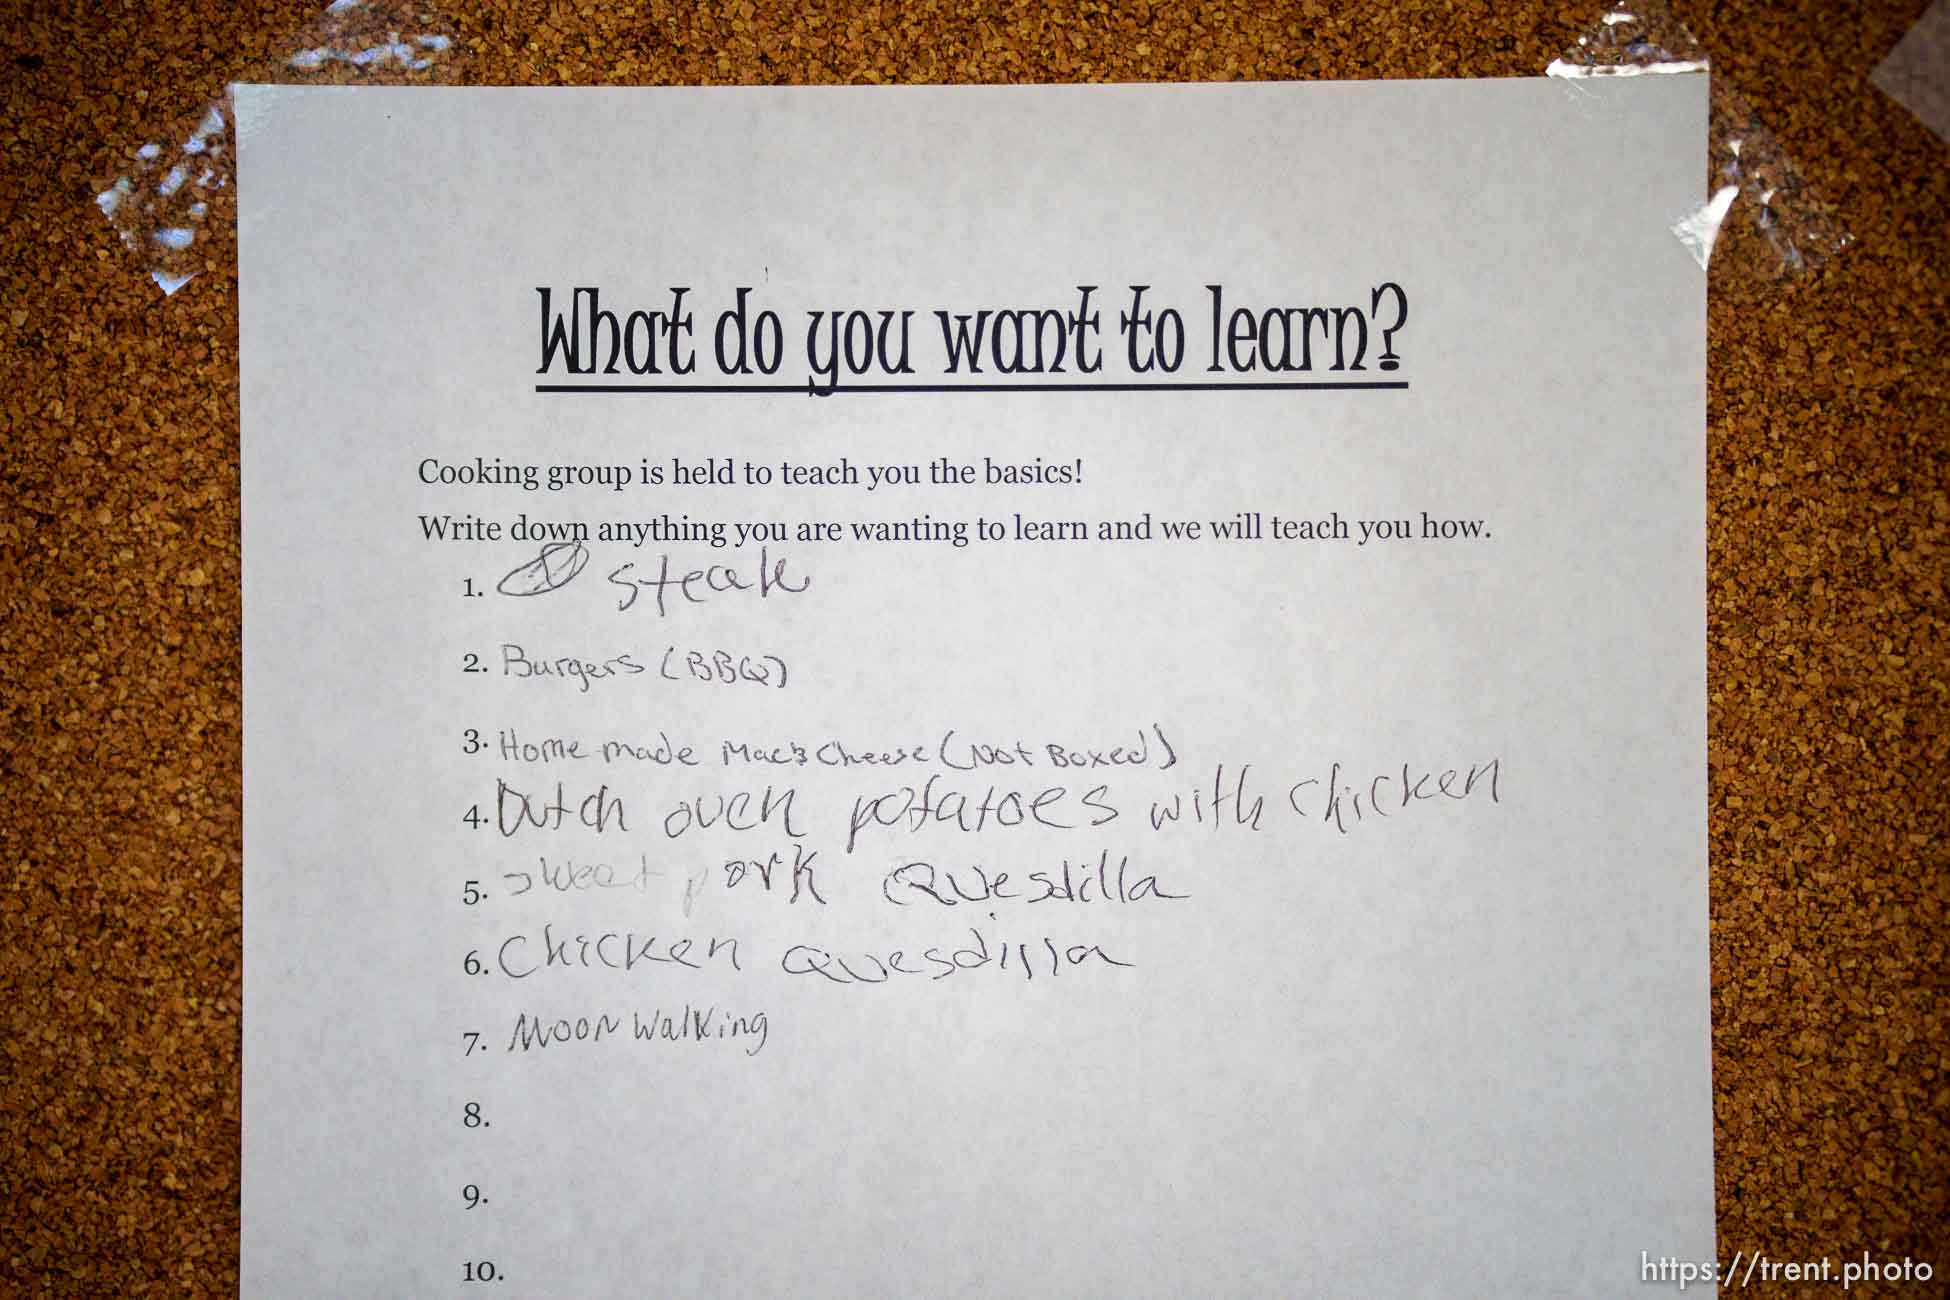 What do you want to learn?
Cooking group is held to teach you the basics!
Write down anything you are wanting to learn and we will teach you how.
1. steak
2. Burgers (BBQ)
3. Home made Mac & Cheese (Not Boxed)
4. Dutch oven potatoes with chicken
5. sweet pork Quesdilla
6. Chicken Quesdilla
7. Moon walking
8.
9.
10.
https://trent.photo